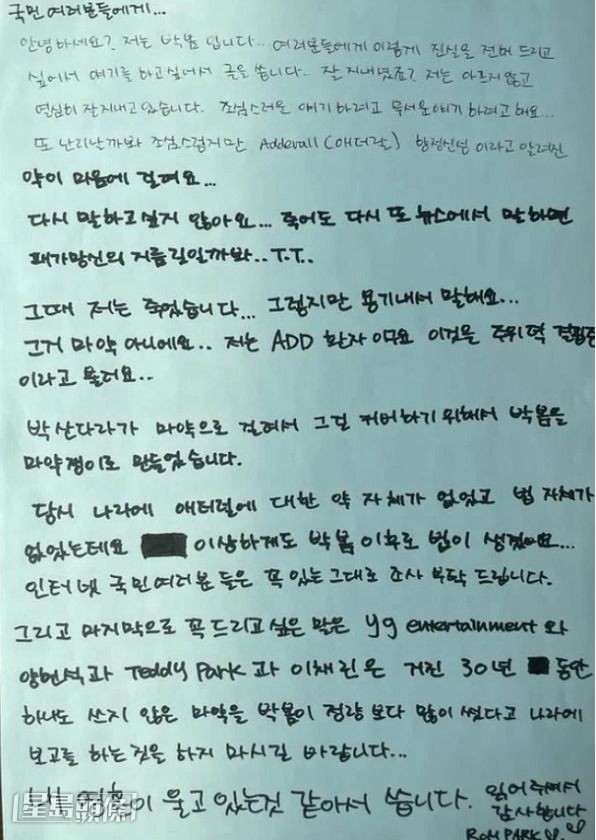 국민 여러분들에게...
안녕하세요? 저는 박봄 입니다.. 여러분들에게 이렇게 진실을 전해 드리고
싶어서 얘기를 하고싶어서 글을 씁니다.. 잘 지내셨죠? 저는 아프지 않고
열심히 잘지내고 있습니다. 조심스러운 얘기 하려고 무서운얘기 하려고 해요...
또 난리난까봐 조심스럽지만 Adderall (애더럴) 향정신성 이라고 알려진
약이 마음에 걸려요...
다시 말하고싶지 않아요... 죽어도 다시 또 뉴스에서 말하면
패가망신의 지름길일까봐.. T.T.
그때 저는 죽었습니다... 그렇지만 용기내서 말해요...
그거 마약 아니에요.. 저는 ADD 환자 이구요 이것을 주위력 결핍증
이라고 불러요..
박산다라가 마약으로 걸려서 그걸 커버하기 위해서 박봄을
마약쟁이로 만들었습니다.
당시 나라에 애더럴에 대한 약 자체가 없었고 법 자체가
없었는데요 이상하게도 박봄 이후로 법이 생겼어요...
인터넷 국민여러분 들은 꼭 있는 그대로 조사 부탁 드립니다.
그리고 마지막으로 꼭 드리고 싶은 말은 yg entertainment 와
양현석과 Teddy Park 과 이채린은 거진 30년 동안
하나도 쓰지 않은 마약을 박봄이 정량 보다 많이 썼다고 나라에
보고를 하는것을 하지 마시길 바랍니다...
이 울고 있는것 같아서 씁니다. 읽어주셔서
감사합니다
BOM PARK
星島頭條